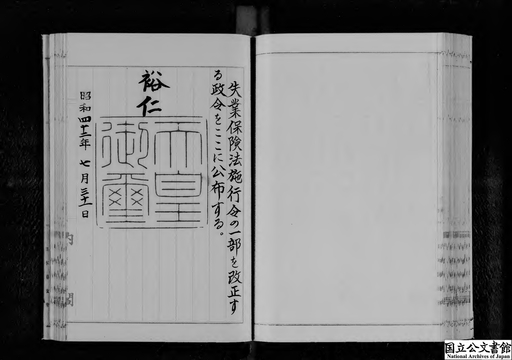 失業保険法施行令の一部を改正す
る政令をここに公布する。
裕仁
天皇
御璽
昭和四十三年 七月三十一日
国立公文書館
National Archives of Japan